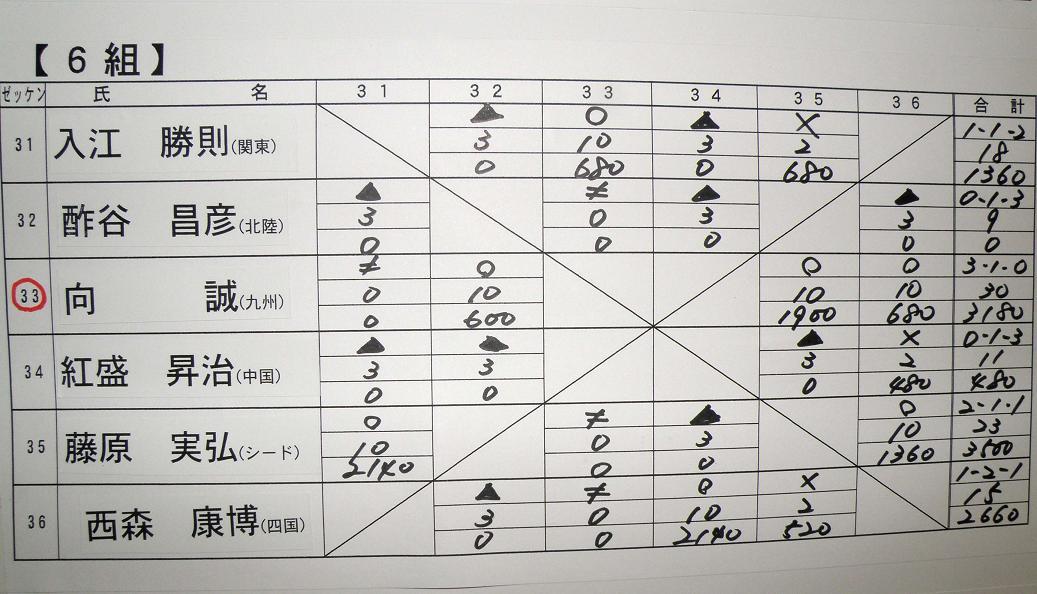 【 6 組 】
ゼッケン 氏 名 31 32 33 34 35 36 合 計
▲ ○ ▲ × 1-1-2
31 入江 勝則(関東) 3 10 3 2 18
0 680 0 680 1360
▲ ≠ ▲ ▲ 0-1-3
32 酢谷 昌彦(北陸) 3 0 3 3 9
0 0 0 0 0
≠ ○ ○ ○ 3-1-0
33 向 誠(九州) 0 10 10 10 30
0 600 1900 680 3180
▲ ▲ ▲ × 0-1-3
34 紅盛 昇治(中国) 3 3 3 2 11
0 0 0 480 480
○ ≠ ▲ ○ 2-1-1
35 藤原 実弘(シード) 10 0 3 10 23
2140 0 0 1360 3500
▲ ≠ ○ × 1-2-1
36 西森 康博(四国) 3 0 10 2 15
0 0 2140 520 2660